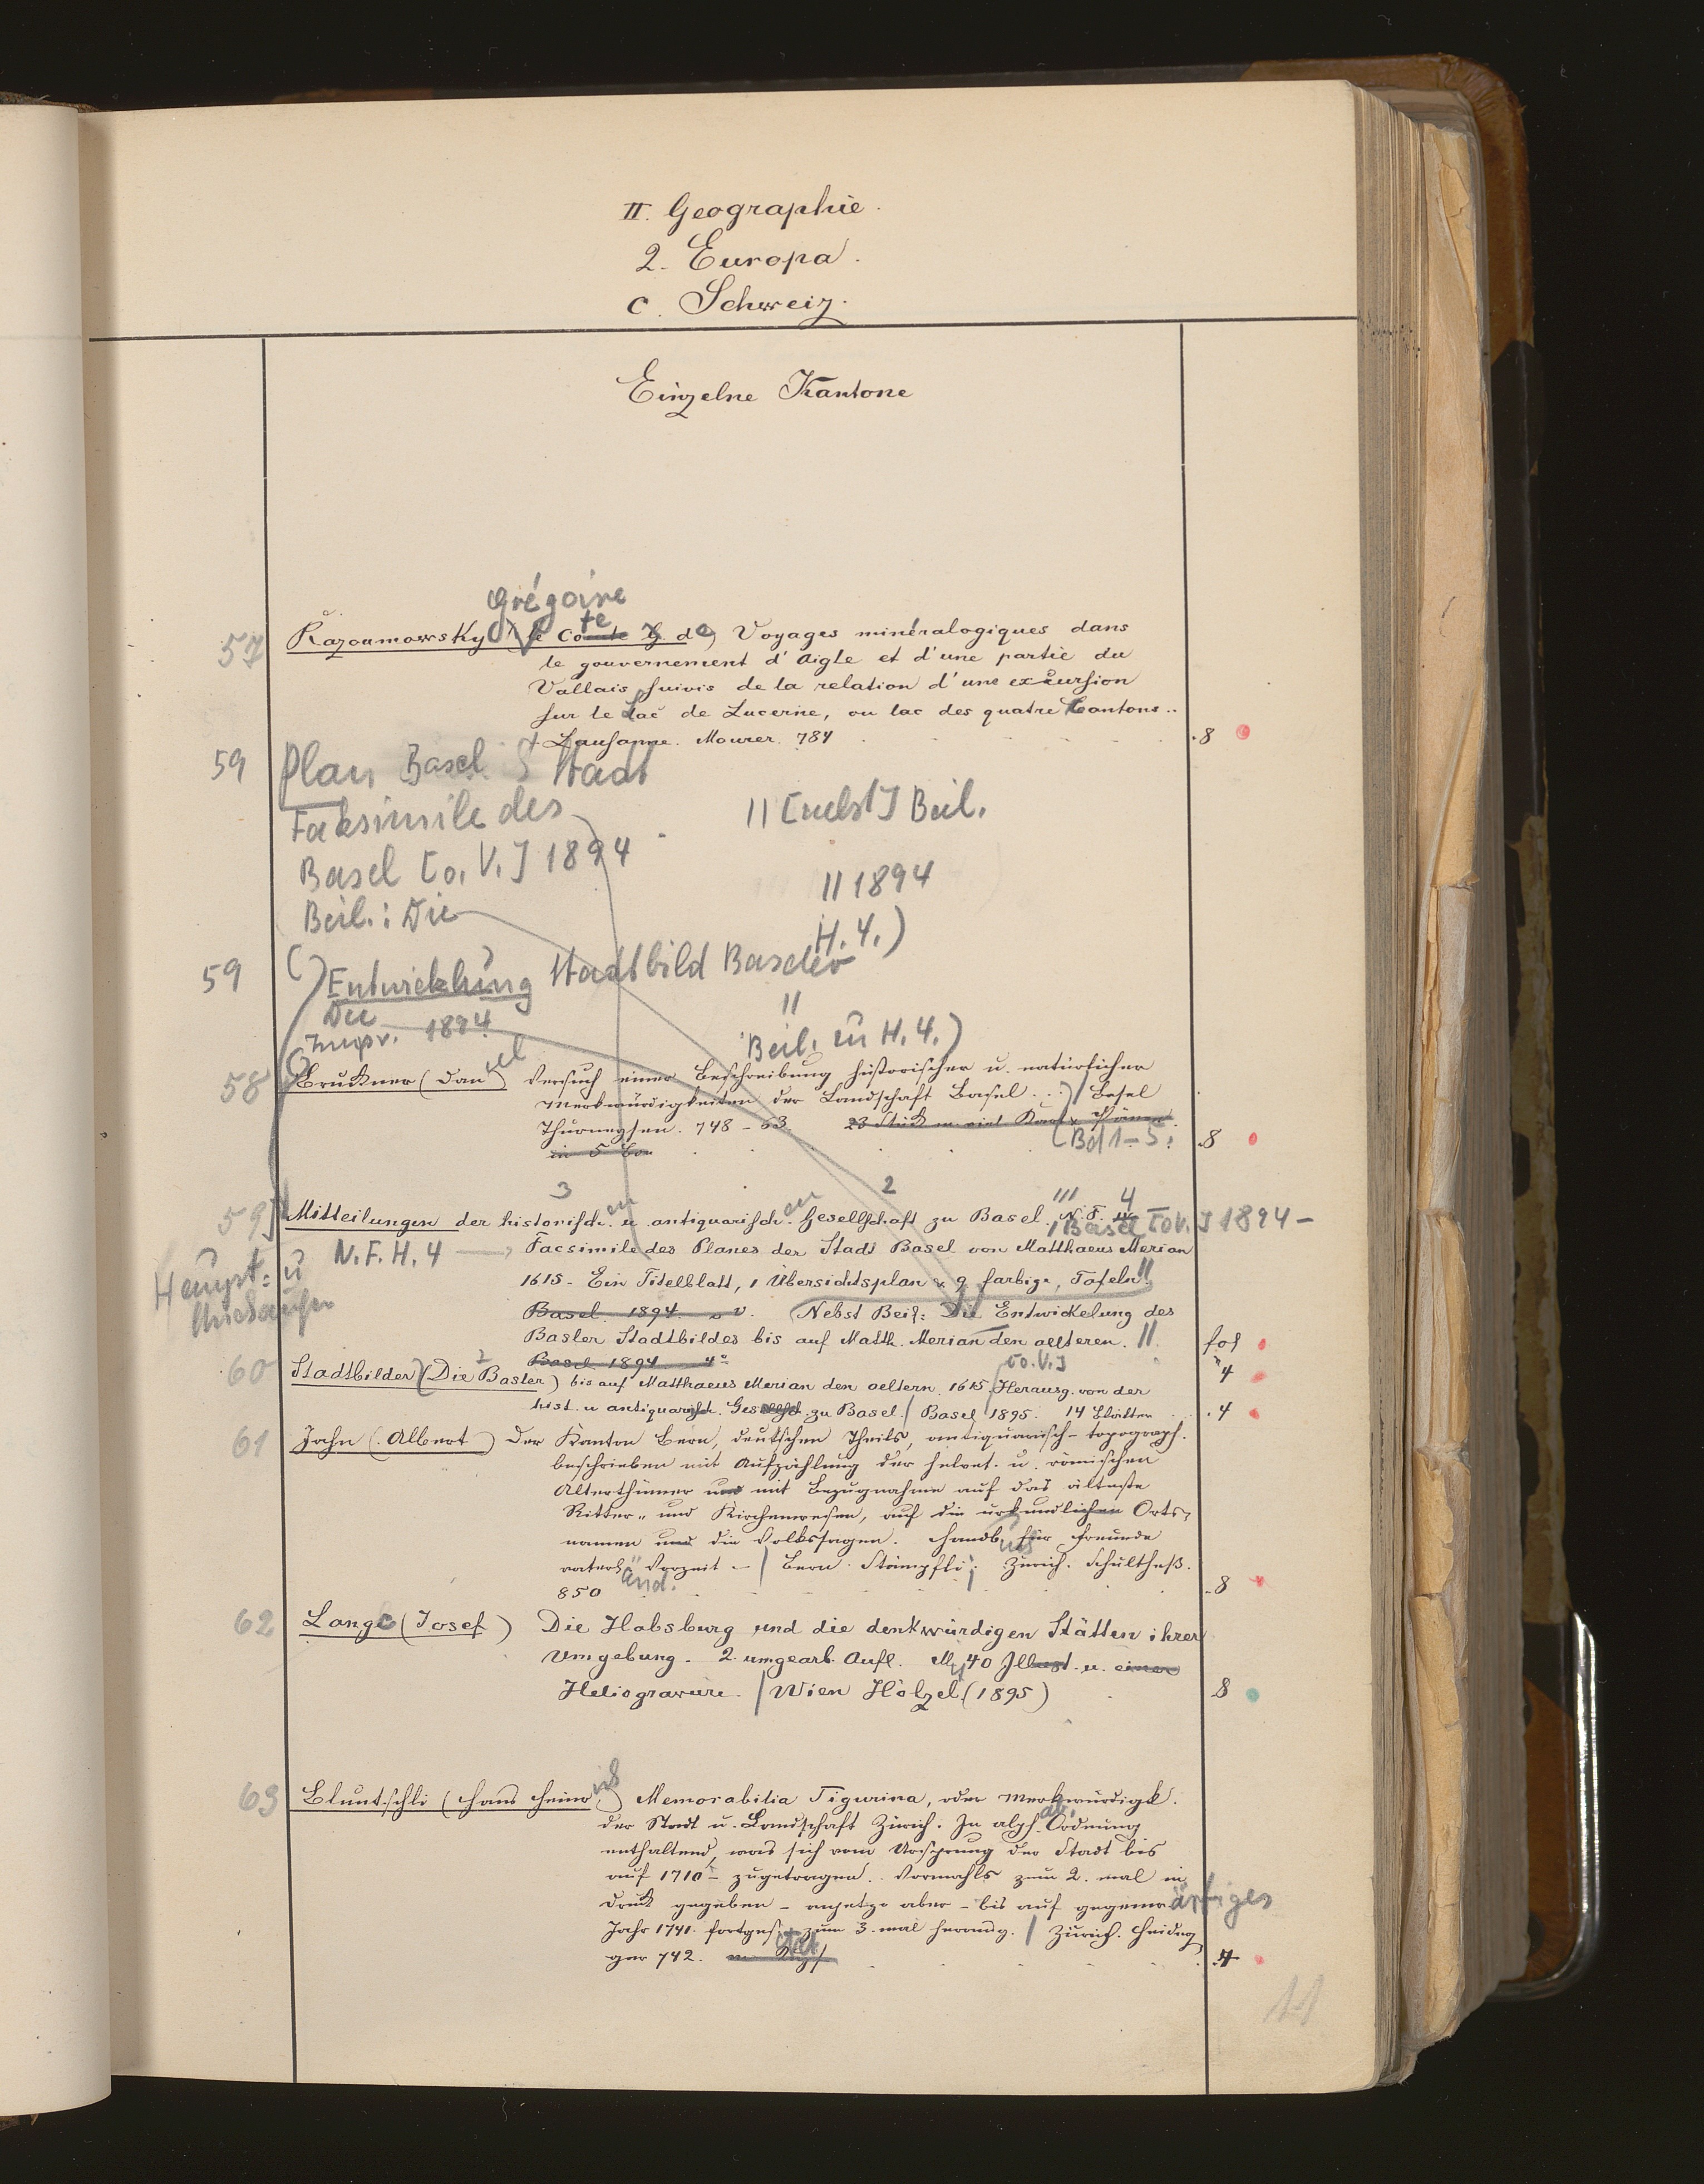 II. Geographie.
2. Europa.
c. Schweiz.
Einzelne Kantone
Grégoire
te
57 Razoumowsky le Comte G de) Voyages minéralogiques dans
le gouvernement d'Aigle et d'une partie du
Vallais suivis de la relation d'une excursion
sur le Lac de Lucerne, ou lac des quatre Cantons..
Lausanne. Mourer. 784 . 8
59 Plan Basel Stadt
Faksimile des || [nebst] Beil.
Basel [o. V.] 1894 || 1894
Beil.: Die H. 4.)
59 Entwicklung Stadtbild Basler
Die ||
Impr. 1894 Beil. zu H. 4.)
iel
58 Bruckner (Dan) Versuch einer Beschreibung historischer u. natürlicher
Merkwürdigkeiten der Landschaft Basel . . . / Basel
Thurneysen. 748 - 63. 23 Stück m. viel Kart u Plänen.
in 5 Bdn (Bd 1-5. 8
3 en en 2 ||| 4
59 Mitteilungen der historisch. u antiquarisch. Gesellschaft zu Basel. N. F. IV / Basel [o V.] 1894 -
N. F. H. 4 Facsimile des Planes der Stadt Basel von Matthaeus Merian
Haupt- u
1615 - Ein Titelblatt, 1 Übersichtsplan u. 9 farbige, Tafeln. ||
Basel. 1894 o V. (Nebst Beil: Die Entwickelung des
Basler Stadtbildes bis auf Matth. Merian den aelteren. || fol
Basel 1894 4° [o. V.] 4
60 Stadtbilder (Die Basler) bis auf Matthaeus Merian den aeltern. 1615. Herausg. von der
hist. u antiquarisch. Gesellsch. zu Basel. / Basel 1895. 14 Blätter . 4
61 Jahn (Albert) Der Kanton Bern, deutschen Theils, antiquarisch-topograph.
beschrieben mit Aufzählung der helvet. u. römischen
Alterthümer und mit Bezugnahme auf das älteste
Ritter- und Kirchenwesen, auf die urkundlichen Orts-
namen und die Volkssagen. Handb. für Freunde
vaterl. Vorzeit - / Bern. Stämpfli; Zürich. Schultheß.
änd.
850 8
62 Lange (Josef) Die Habsburg und die denkwürdigen Stätten ihrer
Umgebung. 2. umgearb. Aufl. M 40 Illust. u. einer
Heliogravure. / Wien Hölzel (1895) 8
ich
63 Bluntschli (Hans Heinr) Memorabilia Tigurina, oder Merkwürdigk.
ab.
der Stadt u. Landschaft Zürich. In alph. Ordnung
enthaltend, was sich vom Ursprung der Stadt bis
auf 1710 - zugetragen. . Vormahls zum 2. mal in
Druck gegeben - anjetzo aber - bis auf gegenwärtiges
Jahr 1741. fortges. zum 3. mal herausg. / Zürich. Heideg
ger 742. 4
11